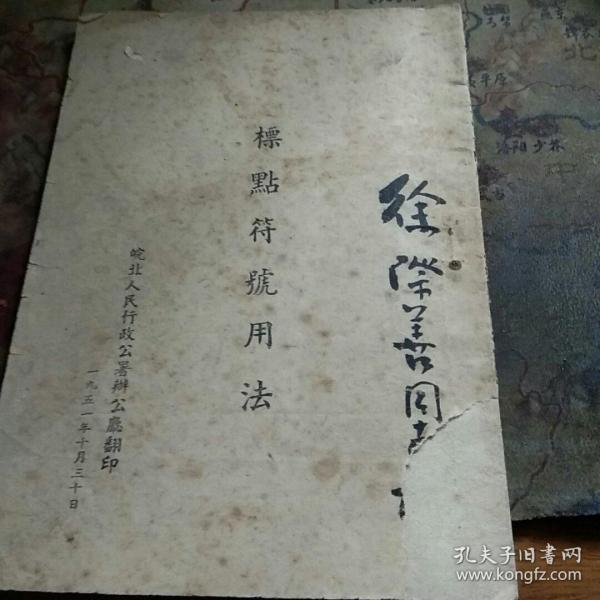 徐際善同志
標點符號用法
皖北人民行政公署辦公廳翻印
一九五一年十月三十日
孔夫子旧书网
www.kongfz.com